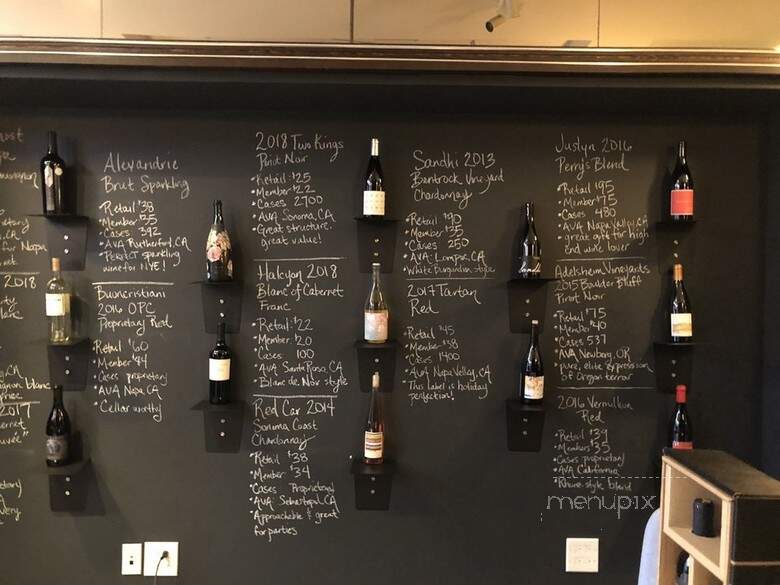 Alexandrie
Brut Sparkling
• Retail $38
• Member $35
• Cases 392
• AVA Rutherford, CA
• Perfect sparkling
wine for NYE!
Buoncristiani
2016 OPC
Proprietary Red
• Retail $60
• Member $44
• Cases proprietary
• AVA Napa
• Cellar worthy
2018 Two Kings
Pinot Noir
• Retail: $25
• Member $22
• Cases 2700
• AVA Sonoma, CA
• Great structure,
great value!
Halcyon 2018
Blanc of Cabernet
Franc
• Retail: $22
• Member $20
• Cases: 100
• AVA Santa Rosa, CA
• Blanc de Noir style
Red Car 2014
Sonoma Coast
Chardonnay
• Retail $38
• Member $34
• Cases Proprietary
• AVA Sebastopol, CA
• Approachable & great
for parties
Sandhi 2013
Bentrock Vineyard
Chardonnay
• Retail $90
• Member $35
• Cases 250
• AVA: Lompoc, CA
• White Burgundian style
2017 Tartan
Red
• Retail $45
• Member $38
• Cases 1400
• AVA Napa Valley, CA
• This label is holiday
perfection!
Justyn 2016
Perry's Blend
• Retail $95
• Member $75
• Cases 480
• AVA Napa Valley, CA
• great gift for high
end wine lover
Adelsheim Vineyards
2015 Boulder Bluff
Pinot Noir
• Retail $75
• Member $40
• Cases 537
• AVA Newberg, OR
• pure, elite expression
of Oregon terroir
2016 Vermillion
Red
• Retail $39
• Members $35
• Cases proprietary
• AVA California
• Rhone-style blend
menupix
for Napa
blanc
2017